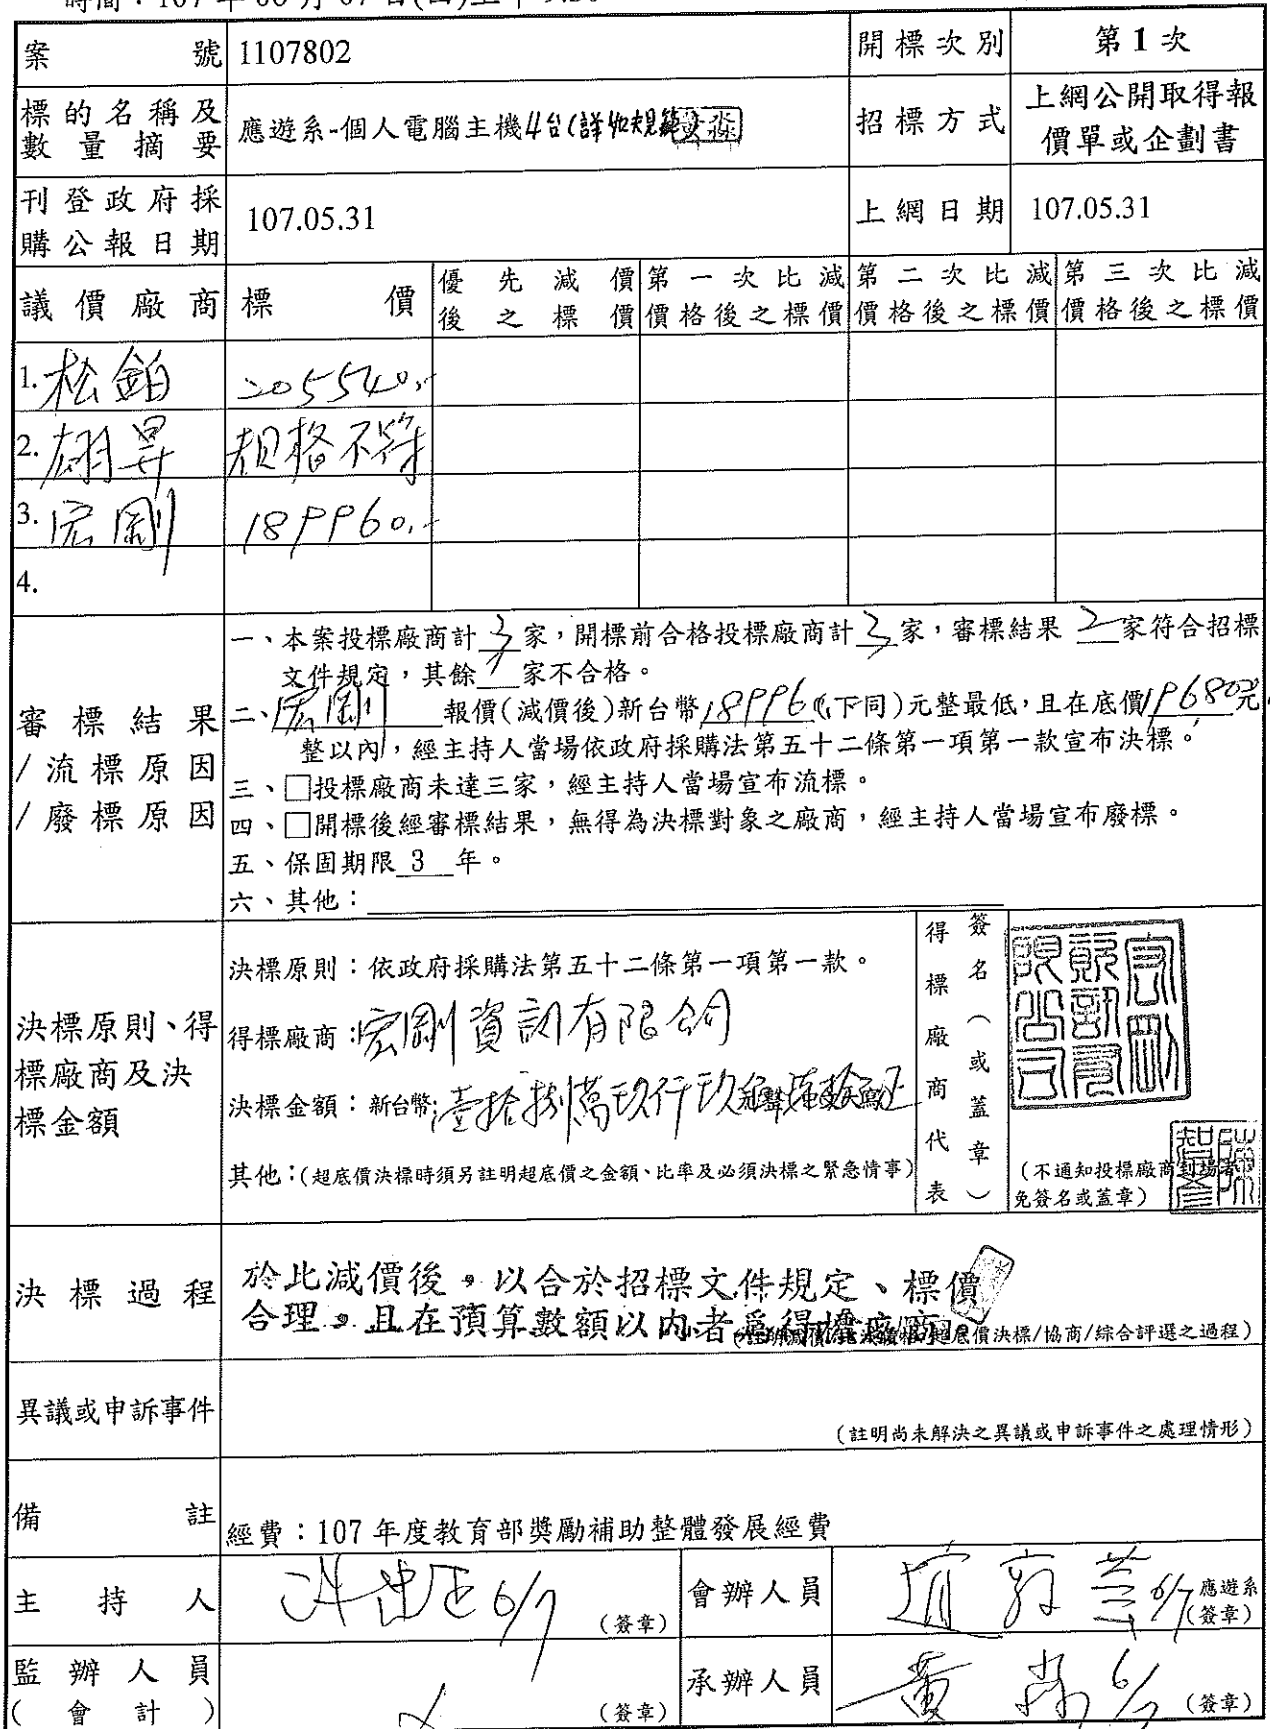 案號 1107802 開標次別 第1次
標的名稱及數量摘要 應遊系-個人電腦主機4台(詳如規範) 招標方式 上網公開取得報價單或企劃書
刊登政府採購公報日期 107.05.31 上網日期 107.05.31
議價廠商 標價 優先減價後之標價 第一次比減價格後之標價 第二次比減價格後之標價 第三次比減價格後之標價
1. 松鉑 205540.-
2. 翃昇 規格不符
3. 宏剛 189960.-
4.
審標結果/流標原因/廢標原因
一、本案投標廠商計 3 家，開標前合格投標廠商計 3 家，審標結果 2 家符合招標
文件規定，其餘 1 家不合格。
二、宏剛 報價(減價後)新台幣 189960 (下同)元整最低，且在底價 196800 元
整以內，經主持人當場依政府採購法第五十二條第一項第一款宣布決標。
三、□投標廠商未達三家，經主持人當場宣布流標。
四、□開標後經審標結果，無得為決標對象之廠商，經主持人當場宣布廢標。
五、保固期限 3 年。
六、其他：
決標原則、得標廠商及決標金額
決標原則：依政府採購法第五十二條第一項第一款。
得標廠商：宏剛資訊有限公司
決標金額：新台幣：壹拾捌萬玖仟玖佰陸拾元正
其他：(超底價決標時須另註明超底價之金額、比率及必須決標之緊急情事)
得標廠商代表
簽名（或蓋章）
宏剛資訊有限公司
(不通知投標廠商到場者
免簽名或蓋章)
決標過程
於比減價後，以合於招標文件規定、標價
合理，且在預算數額以內者為得標廠商。
超底價決標/協商/綜合評選之過程)
異議或申訴事件
(註明尚未解決之異議或申訴事件之處理情形)
備註 經費：107 年度教育部獎勵補助整體發展經費
主持人 6/7 (簽章) 會辦人員 6/7 應遊系 (簽章)
監辦人員(會計) (簽章) 承辦人員 黃 6/7 (簽章)